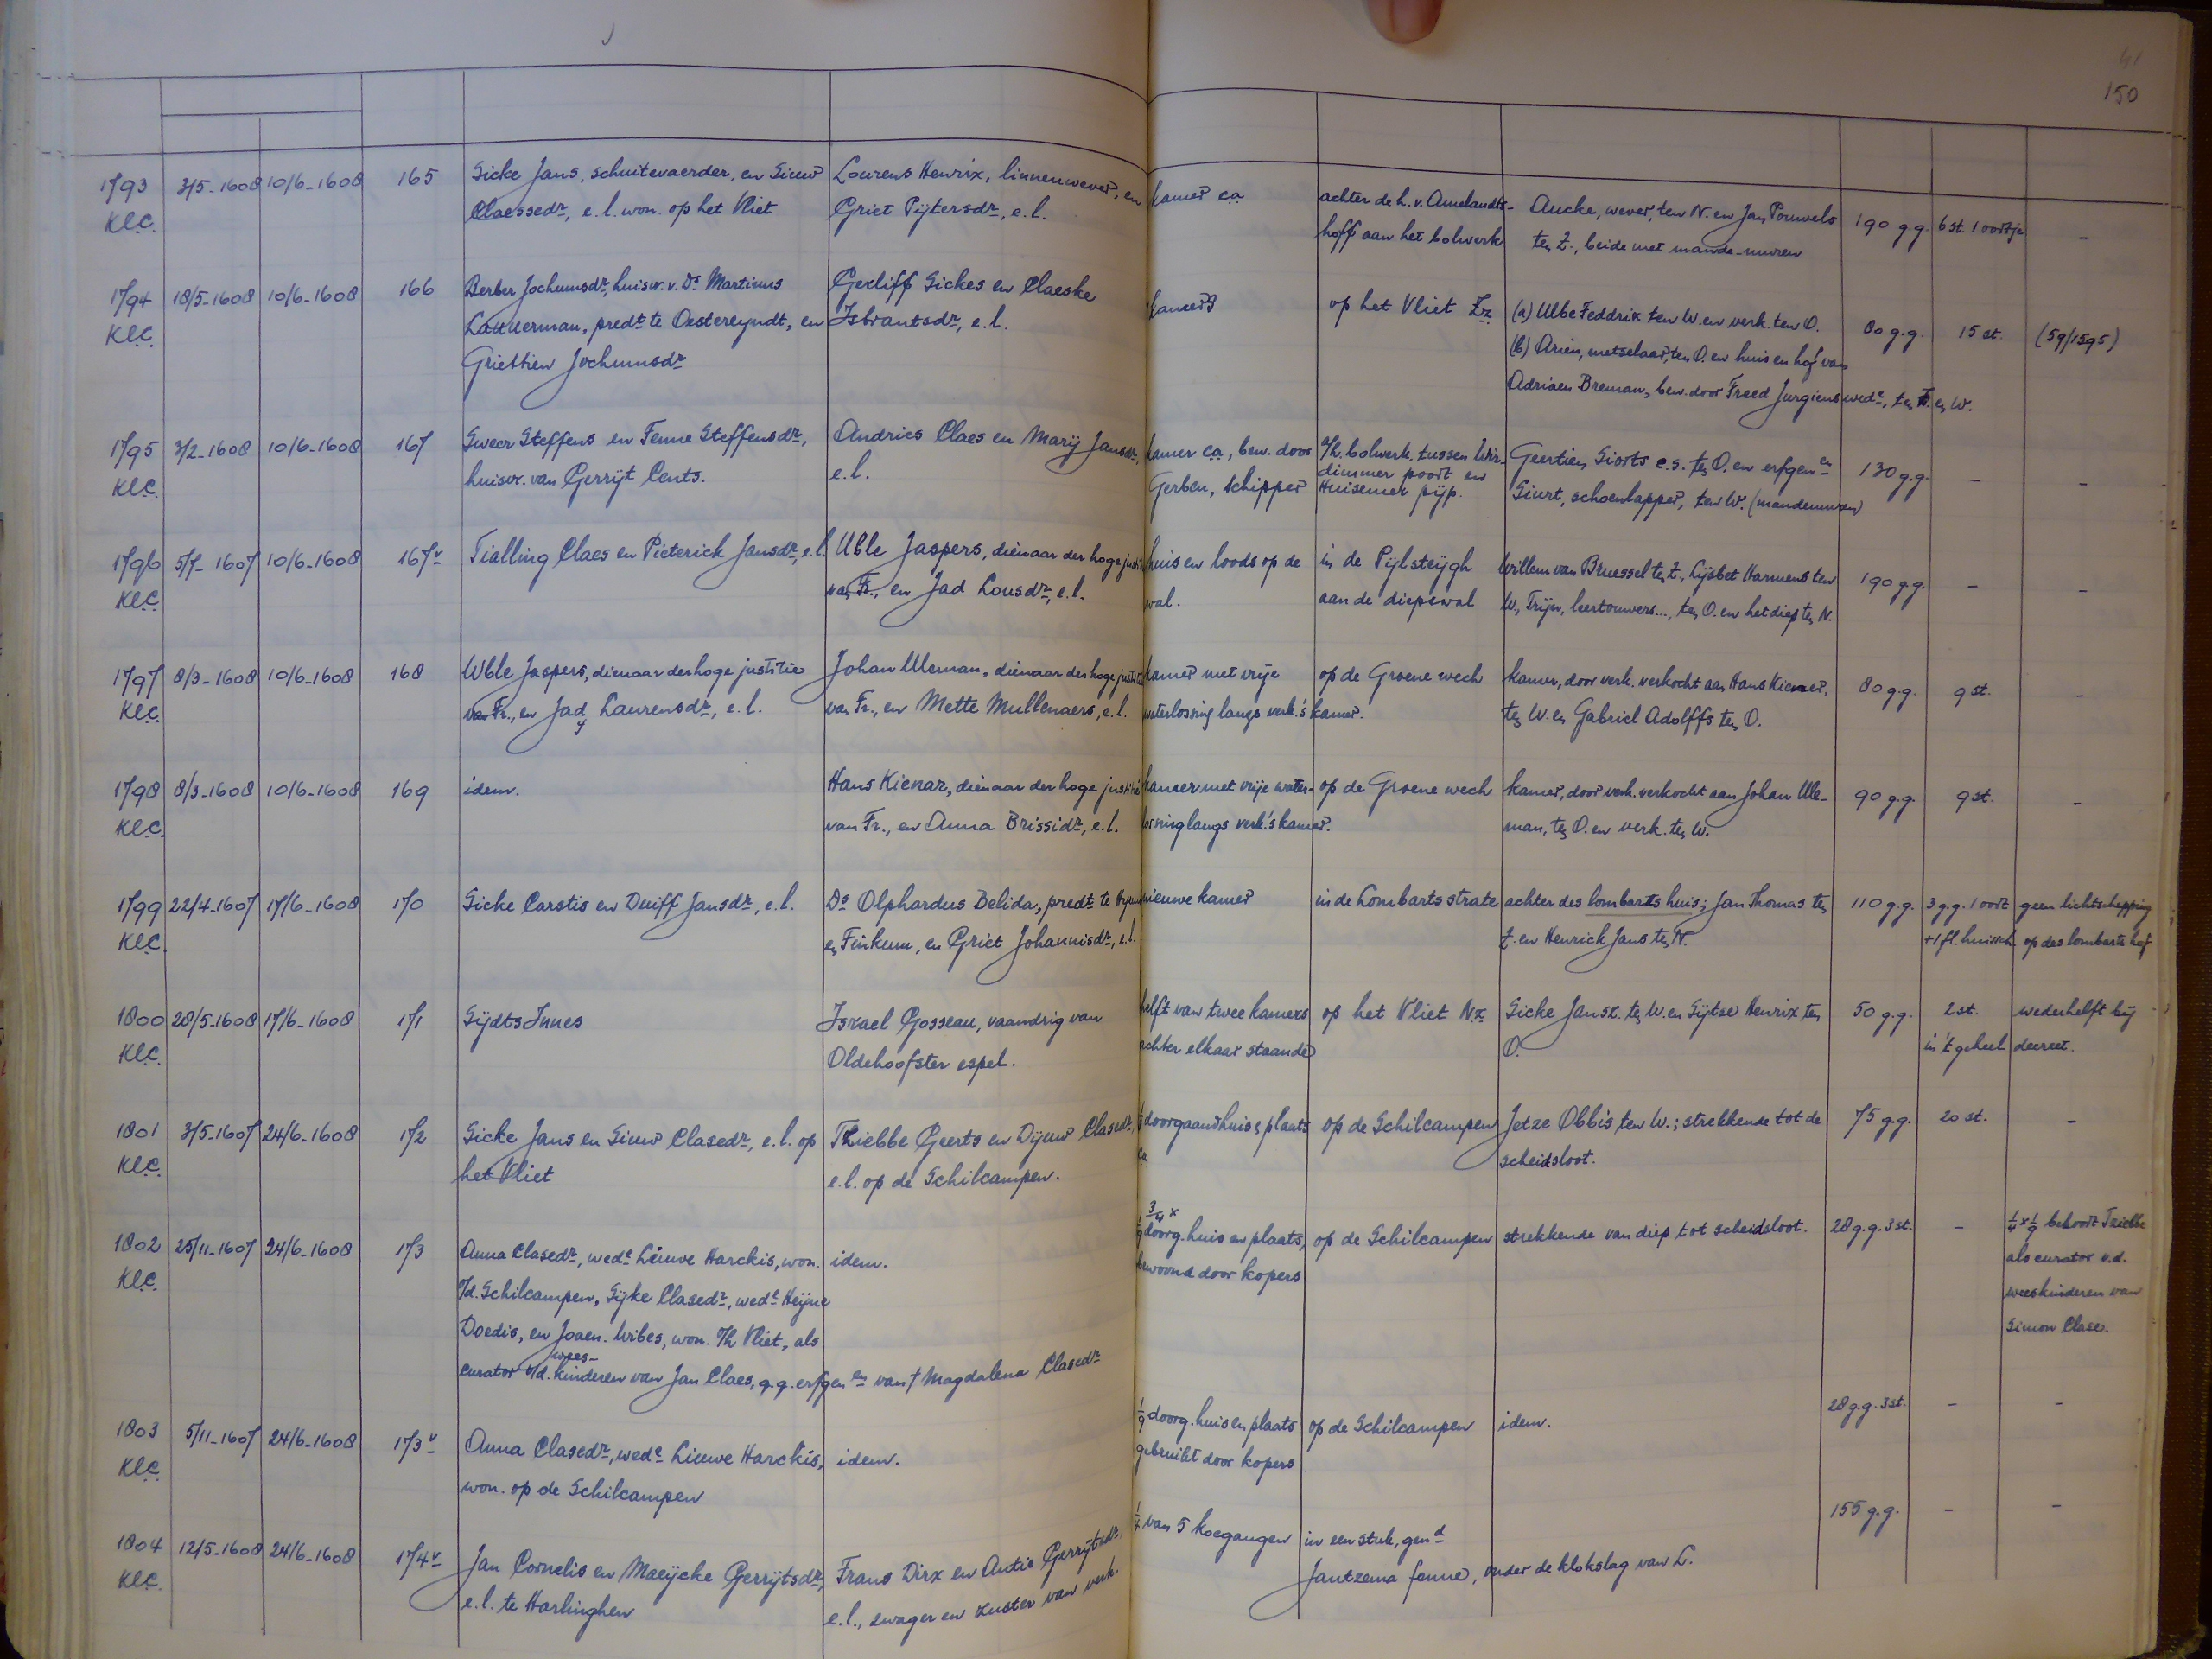 41
150
1793 3/5-1608 10/6-1608 165 Sicke Jans, schuitevaerder, en Sieuw Lourens Henrix, linnenwever, en kamer ca achter de h. v. Amelandts- Aucke, wever, ten N. en Jan Pouwels 190 g.g. 6 st. 1 oortje -
KLC. Claessedr, e.l. won. op het Vliet Griet Pijtersdr, e.l. hoff aan het bolwerk ten Z., beide met mande-muren
1794 18/5-1608 10/6-1608 166 Berber Jochumsdr, huisvr. v. Ds Martinus Gerliff Sickes en Claeske kamers op het Vliet Zz (a) Ulbe Feddrix ten W. en verk. ten O. 80 g.g. 15 st. (59/1595)
KLC. predt te Oostereyndt, en Isbrantsdr, e.l. (b) Arien, metselaar, ten O. en huis en hof van
Griettien Jochumsdr Adriaen Breman, bew. door Freed Jurgiens wede, ten Z. en W.
1795 3/2-1608 10/6-1608 167 Sweer Steffens en Fenne Steffensdr, Andries Claes en Marij Jansdr, kamer ca, bew. door o/h. bolwerk tussen Wir- Geertien Sioorts c.s. ten O. en erfgenen 130 g.g. - -
KLC. huisvr. van Gerrijt Cents. e.l. Gerben, schipper dimmer poort en Siurt, schoenlapper, ten W. (mandemuren)
Huisemer pijp.
1796 5/7-1607 10/6-1608 167v Tialling Claes en Pieterick Jansdr, e.l. Uble Jaspers, dienaar der hoge justitie huis en loods op de in de Pijlsteijgh Willem van Bruessel ten Z., Lijsbet Harmens ten 190 g.g. - -
KLC. van Fr., en Jad Lousdr, e.l. wal. aan de diepswal W., Trijn, leertouwers..., ten O. en het diep ten N.
1797 8/3-1608 10/6-1608 168 Wble Jaspers, dienaar der hoge justitie Johan Uleman, dienaar der hoge justitie kamer met vrije op de Groene wech kamer, door verk. verkocht aan Hans Kiener, 80 g.g. 9 st. -
KLC. van Fr., en Jady Laurensdr, e.l. van Fr., en Mette Mullenaers, e.l. waterlossing langs verk.'s kamer. ten W. en Gabriel Adolffs ten O.
1798 8/3-1608 10/6-1608 169 idem. Hans Kienar, dienaar der hoge justitie kamer met vrije water- op de Groene wech kamer, door verk. verkocht aan Johan Ule- 90 g.g. 9 st. -
KLC. van Fr., en Anna Brissidr, e.l. lossing langs verk.'s kamer. man, ten O. en verk. ten W.
1799 22/4-1607 17/6-1608 170 Sicke Carstis en Duiff Jansdr, e.l. Ds Olphardus Belida, predt te nieuwe kamer in de Lombarts strate achter des lombarts huis; Jan Thomas ten 110 g.g. 3 g.g. 1 oort geen lichtschepping
KLC. en Finkum, en Griet Johannisdr, e.l. Z. en Henrick Jans ten N. +1 fl. huissch. op des lombarts hof
1800 28/5-1608 17/6-1608 171 Sijdts Innes Israel Gosseau, vaandrig van helft van twee kamers op het Vliet Nz Sicke Jansz. ten W. en Sijtse Henrix ten 50 g.g. 2 st. wederhelft bij
KLC. Oldehoofster espel. achter elkaar staande O. in 't geheel decreet.
1801 3/5-1607 24/6-1608 172 Sicke Jans en Sieuw Clasedr, e.l. op Thiebbe Geerts en Dijeuw Clasedr, 1/9 doorgaand huis & plaats op de Schilcampen Jetze Obbis ten W.; strekkende tot de 75 g.g. 20 st. -
KLC. het Vliet e.l. op de Schilcampen. ca scheidsloot.
1802 25/11-1607 24/6-1608 173 Anna Clasedr, wede Lieuwe Harckis, won. idem. 3/4 x 1/9 doorg. huis en plaats, op de Schilcampen strekkende van diep tot scheidsloot. 28 g.g. 3 st. - 1/4 x 1/9 behoort Tziebbe
KLC. o/d. Schilcampen, Sijke Clasedr, wede Heijne bewoond door kopers als curator v.d.
Doedis, en Joaen. Wibes, won. o/h Vliet, als weeskinderen van
curator o/d. wees-kinderen van Jan Claes, q.q. erfgenen van † Magdalena Clasedr Simon Clase.
1803 5/11-1607 24/6-1608 173v Anna Clasedr, wede Lieuwe Harckis, idem. 1/9 doorg. huis en plaats op de Schilcampen idem. 28 g.g. 3 st. - -
KLC. won. op de Schilcampen gebruikt door kopers
1804 12/5-1608 24/6-1608 174v Jan Cornelis en Maeijcke Gerrijtsdr, Frans Dirx en Antie Gerrijtsdr, 1/4 van 5 koegangen in een stuk, gend 155 g.g. - -
KLC. e.l. te Harlinghen e.l., zwager en zuster van verk. Jantzema fenne, onder de klokslag van L.